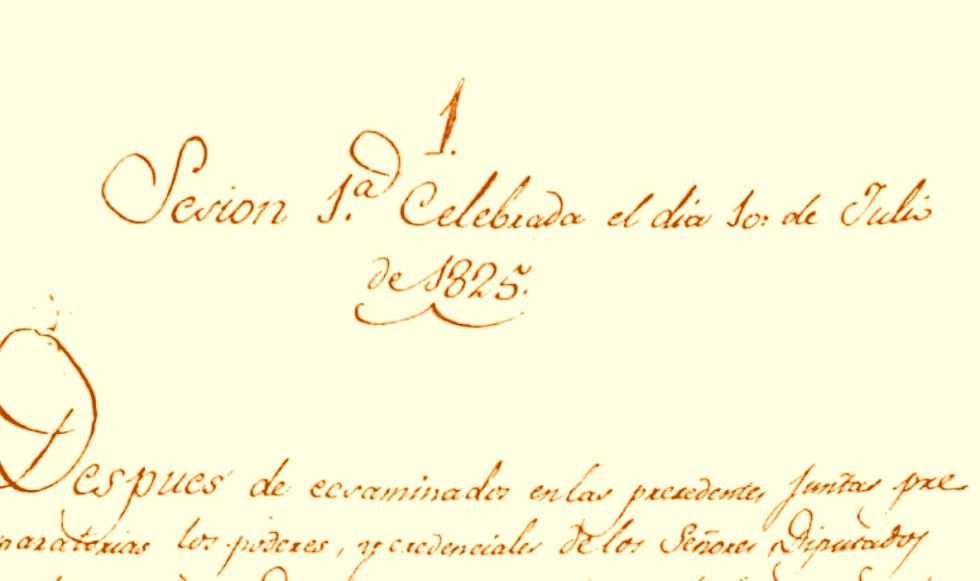 1.
Sesion 1.ª Celebrada el dia 10: de Julio
de 1825.
Despues de ecsaminados en las precedentes Juntas pre-
paratorias los poderes, y credenciales de los Señores Diputados